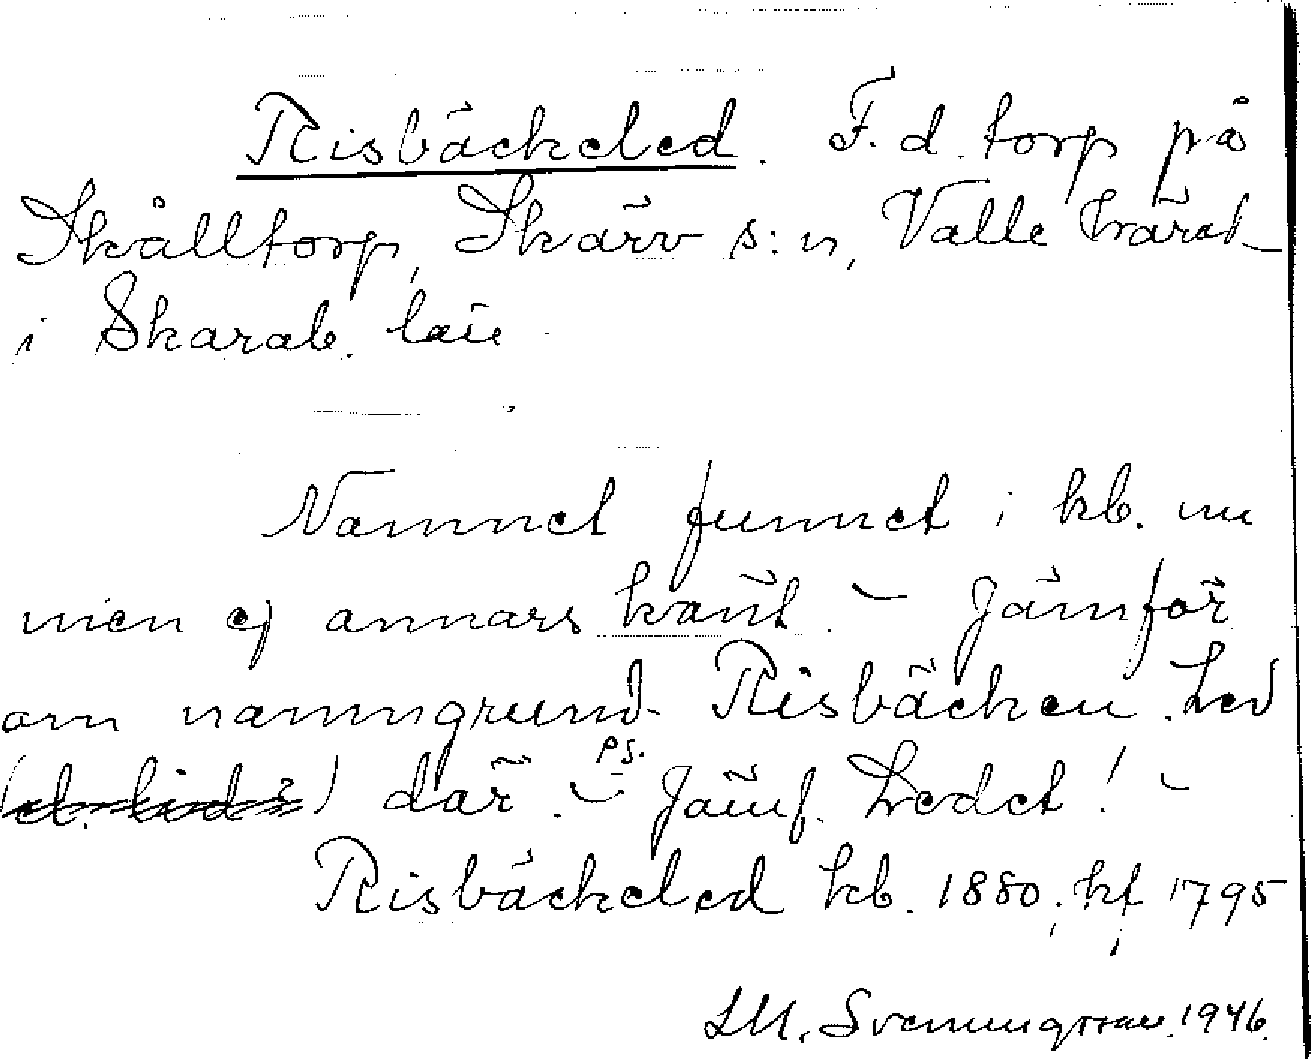 Risbäckeled. F.d. torp på
Skålltorp, Skärv s:n, Valle härad
i Skarab. län
Namnet funnet i kb. nu
men ej annars känt. – Jämför
om namngrund. Risbäcken. Led
(el. lid?) där. – ps. Jämf. Ledet! –
Risbäckeled kb. 1880; hf 1795
LM. Svenungsson. 1946.